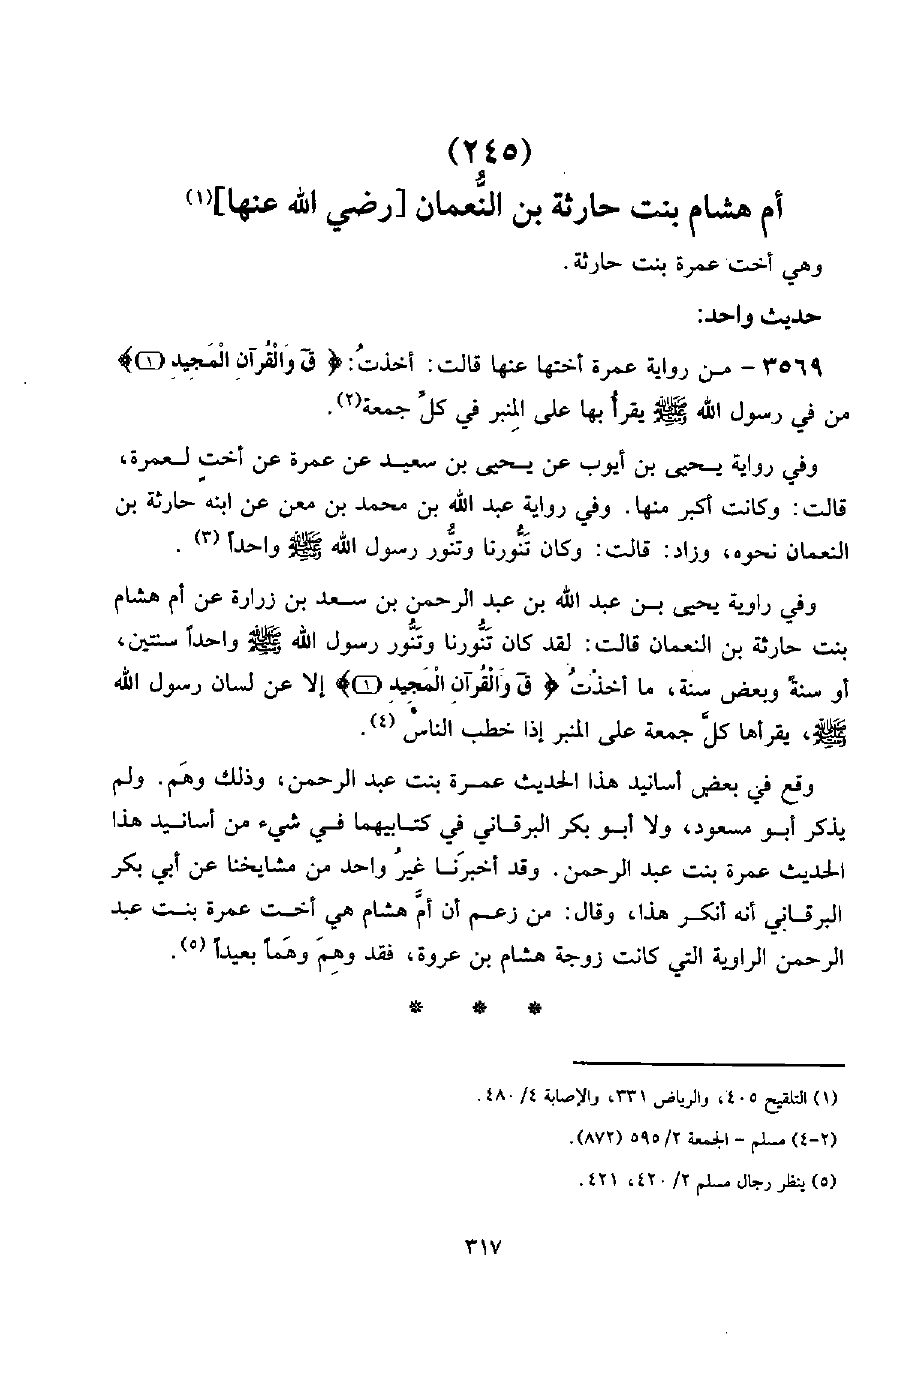 (٢٤٥)
أم هشام بنت حارثة بن النُّعمان [رضي الله عنها](١)
وهي أخت عمرة بنت حارثة.
حديث واحد:
٣٥٦٩ - من رواية عمرة أختها عنها قالت: أخذتُ: ﴿ قٓ وَالْقُرآنِ الْمَجِيدِ (١)﴾
من في رسول الله ﷺ يقرأُ بها على المنبرِ في كلِّ جمعة(٢).
وفي رواية يحيى بن أيوب عن يحيى بن سعيد عن عمرة عن أختٍ لعمرة،
قالت: وكانت أكبر منها. وفي رواية عبد الله بن محمد بن معن عن ابنه حارثة بن
النعمان نحوه، وزاد: قالت: وكان تَنُّورنا وتنُّور رسول الله ﷺ واحداً (٣) .
وفي راوية يحيى بن عبد الله بن عبد الرحمن بن سعد بن زرارة عن أم هشام
بنت حارثة بن النعمان قالت: لقد كان تَنُّورنا وتَنُّور رسول الله ﷺ واحداً سنتين،
أو سنةً وبعض سنة، ما أخذْتُ ﴿ قٓ وَالْقُرآنِ الْمَجِيدِ (١)﴾ إلا عن لسان رسول الله
ﷺ، يقرأها كلَّ جمعة على المنبر إذا خطب الناسَ (٤).
وقع في بعض أسانيد هذا الحديث عمرة بنت عبد الرحمن، وذلك وهَم. ولم
يذكر أبو مسعود، ولا أبو بكر البرقاني في كتابيهما في شيء من أسانيد هذا
الحديث عمرة بنت عبد الرحمن. وقد أخبرَنا غيرُ واحد من مشايخنا عن أبي بكر
البرقاني أنه أنكر هذا، وقال: من زعم أن أمَّ هشام هي أخت عمرة بنت عبد
الرحمن الراوية التي كانت زوجة هشام بن عروة، فقد وهِمَ وهَماً بعيداً (٥).
* * *
(١) التلقيح ٤٠٥، والرياض ٣٣١، والإصابة ٤/ ٤٨٠.
(٢-٤) مسلم - الجمعة ٢/ ٥٩٥ (٨٧٢).
(٥) ينظر رجال مسلم ٢/ ٤٢٠، ٤٢١.
٣١٧